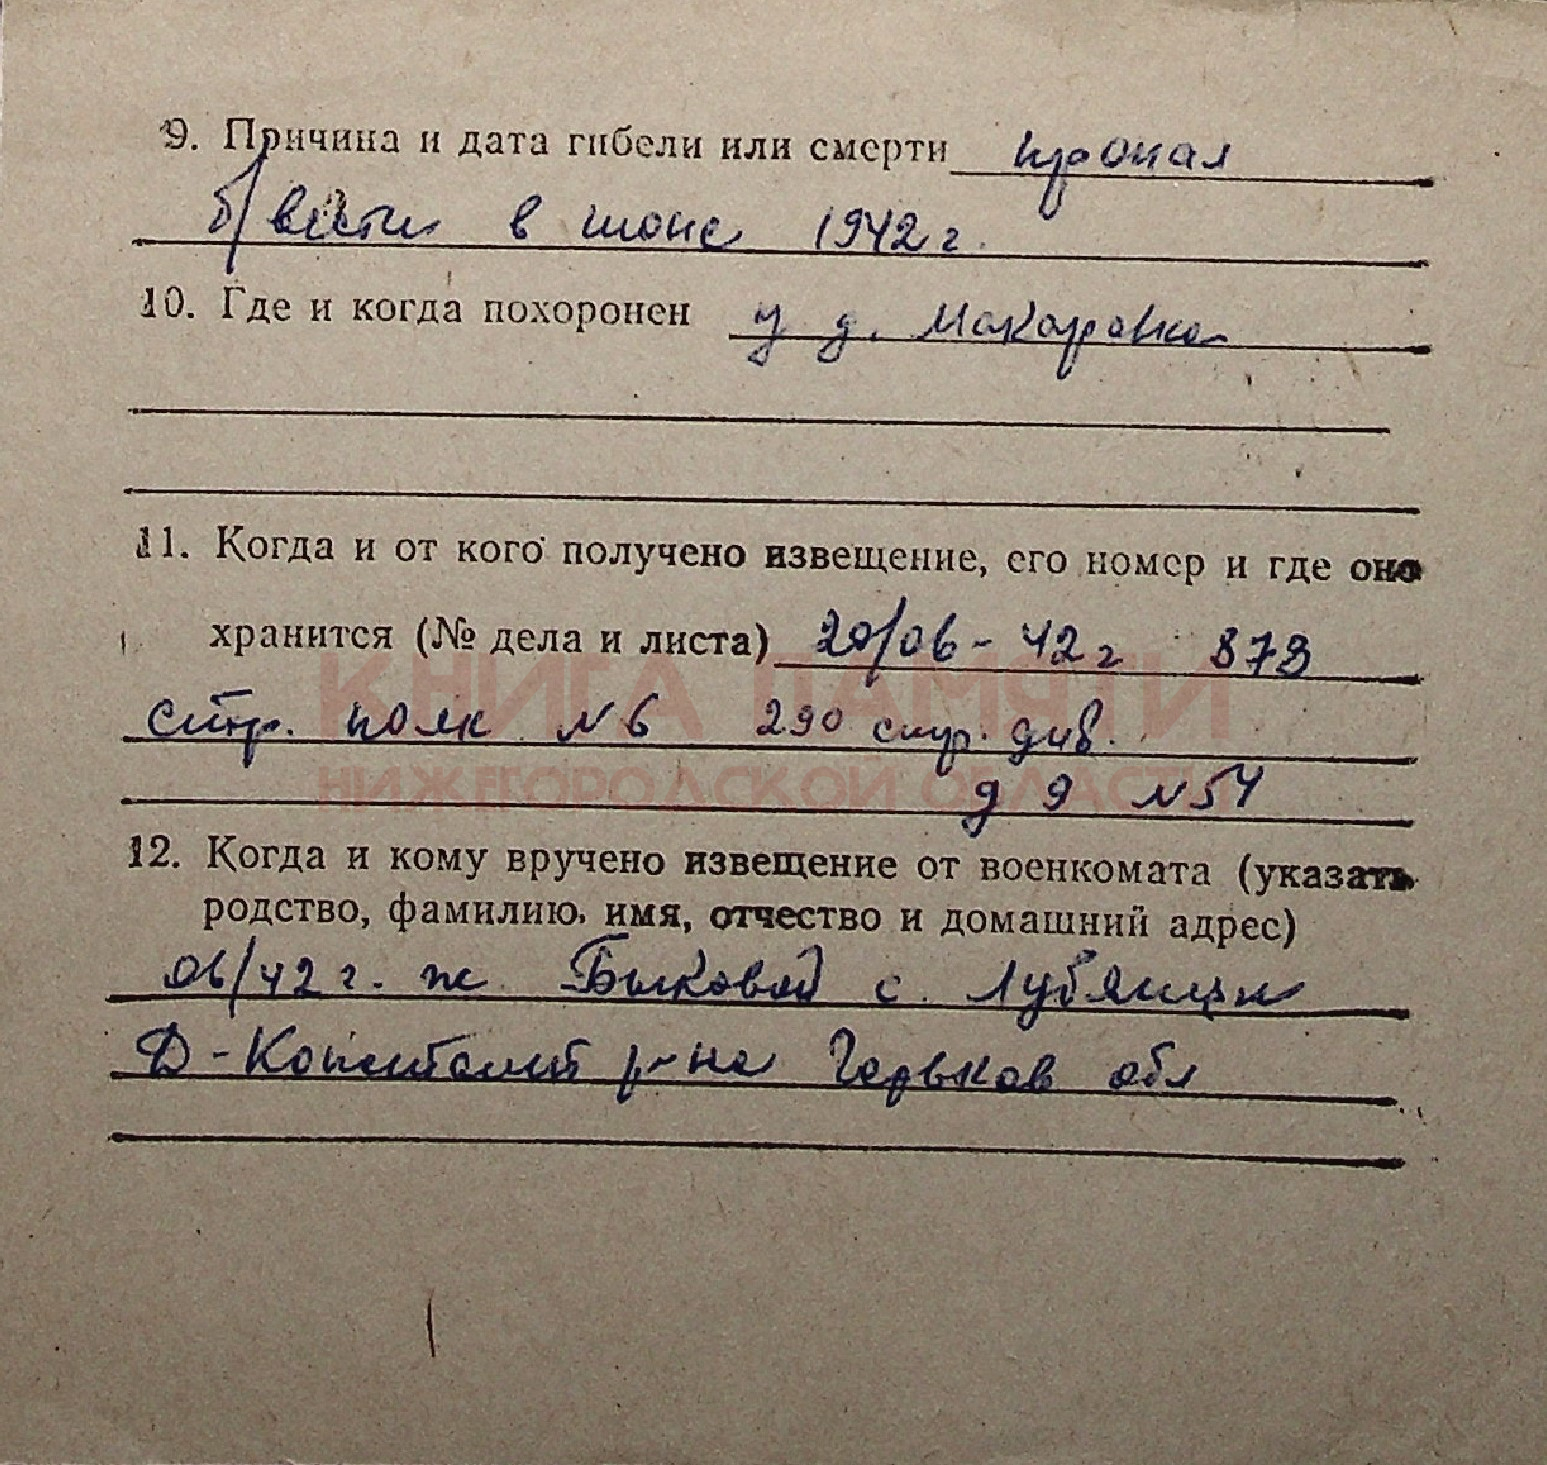 9. Причина и дата гибели или смерти пропал
б/вести в июне 1942 г.
10. Где и когда похоронен у д. Макаровка
11. Когда и от кого получено извещение, его номер и где оно
хранится (№ дела и листа) 20/06-42 г 878
КНИГА ПАМЯТИ
стр. полк № 6 290 стр. див.
НИЖЕГОРОДСКОЙ ОБЛАСТИ
д 9 № 54
12. Когда и кому вручено извещение от военкомата (указать
родство, фамилию, имя, отчество и домашний адрес)
06/42 г. ж Быковой с. Лубянцы
Д-Константи р-на Горьков обл